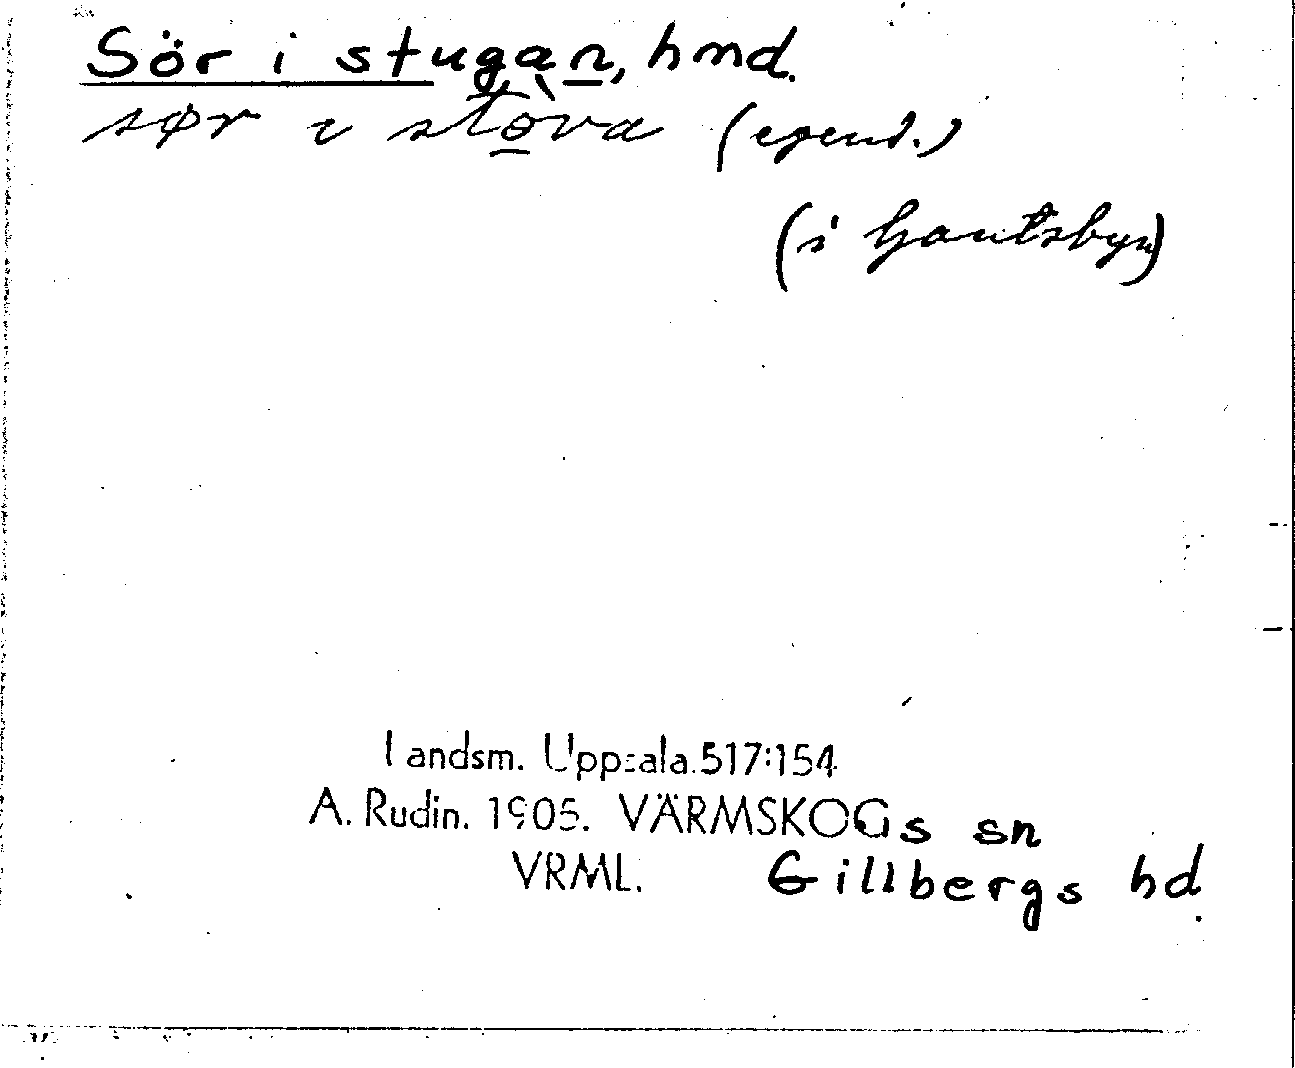 Sör i stugan, hmd.
sør ɩ stòva (egend.)
(i Gautsbyn)
Landsm. Uppsala.517:154
A. Rudin. 1905. VÄRMSKOGs sn
VRML. Gillbergs hd.